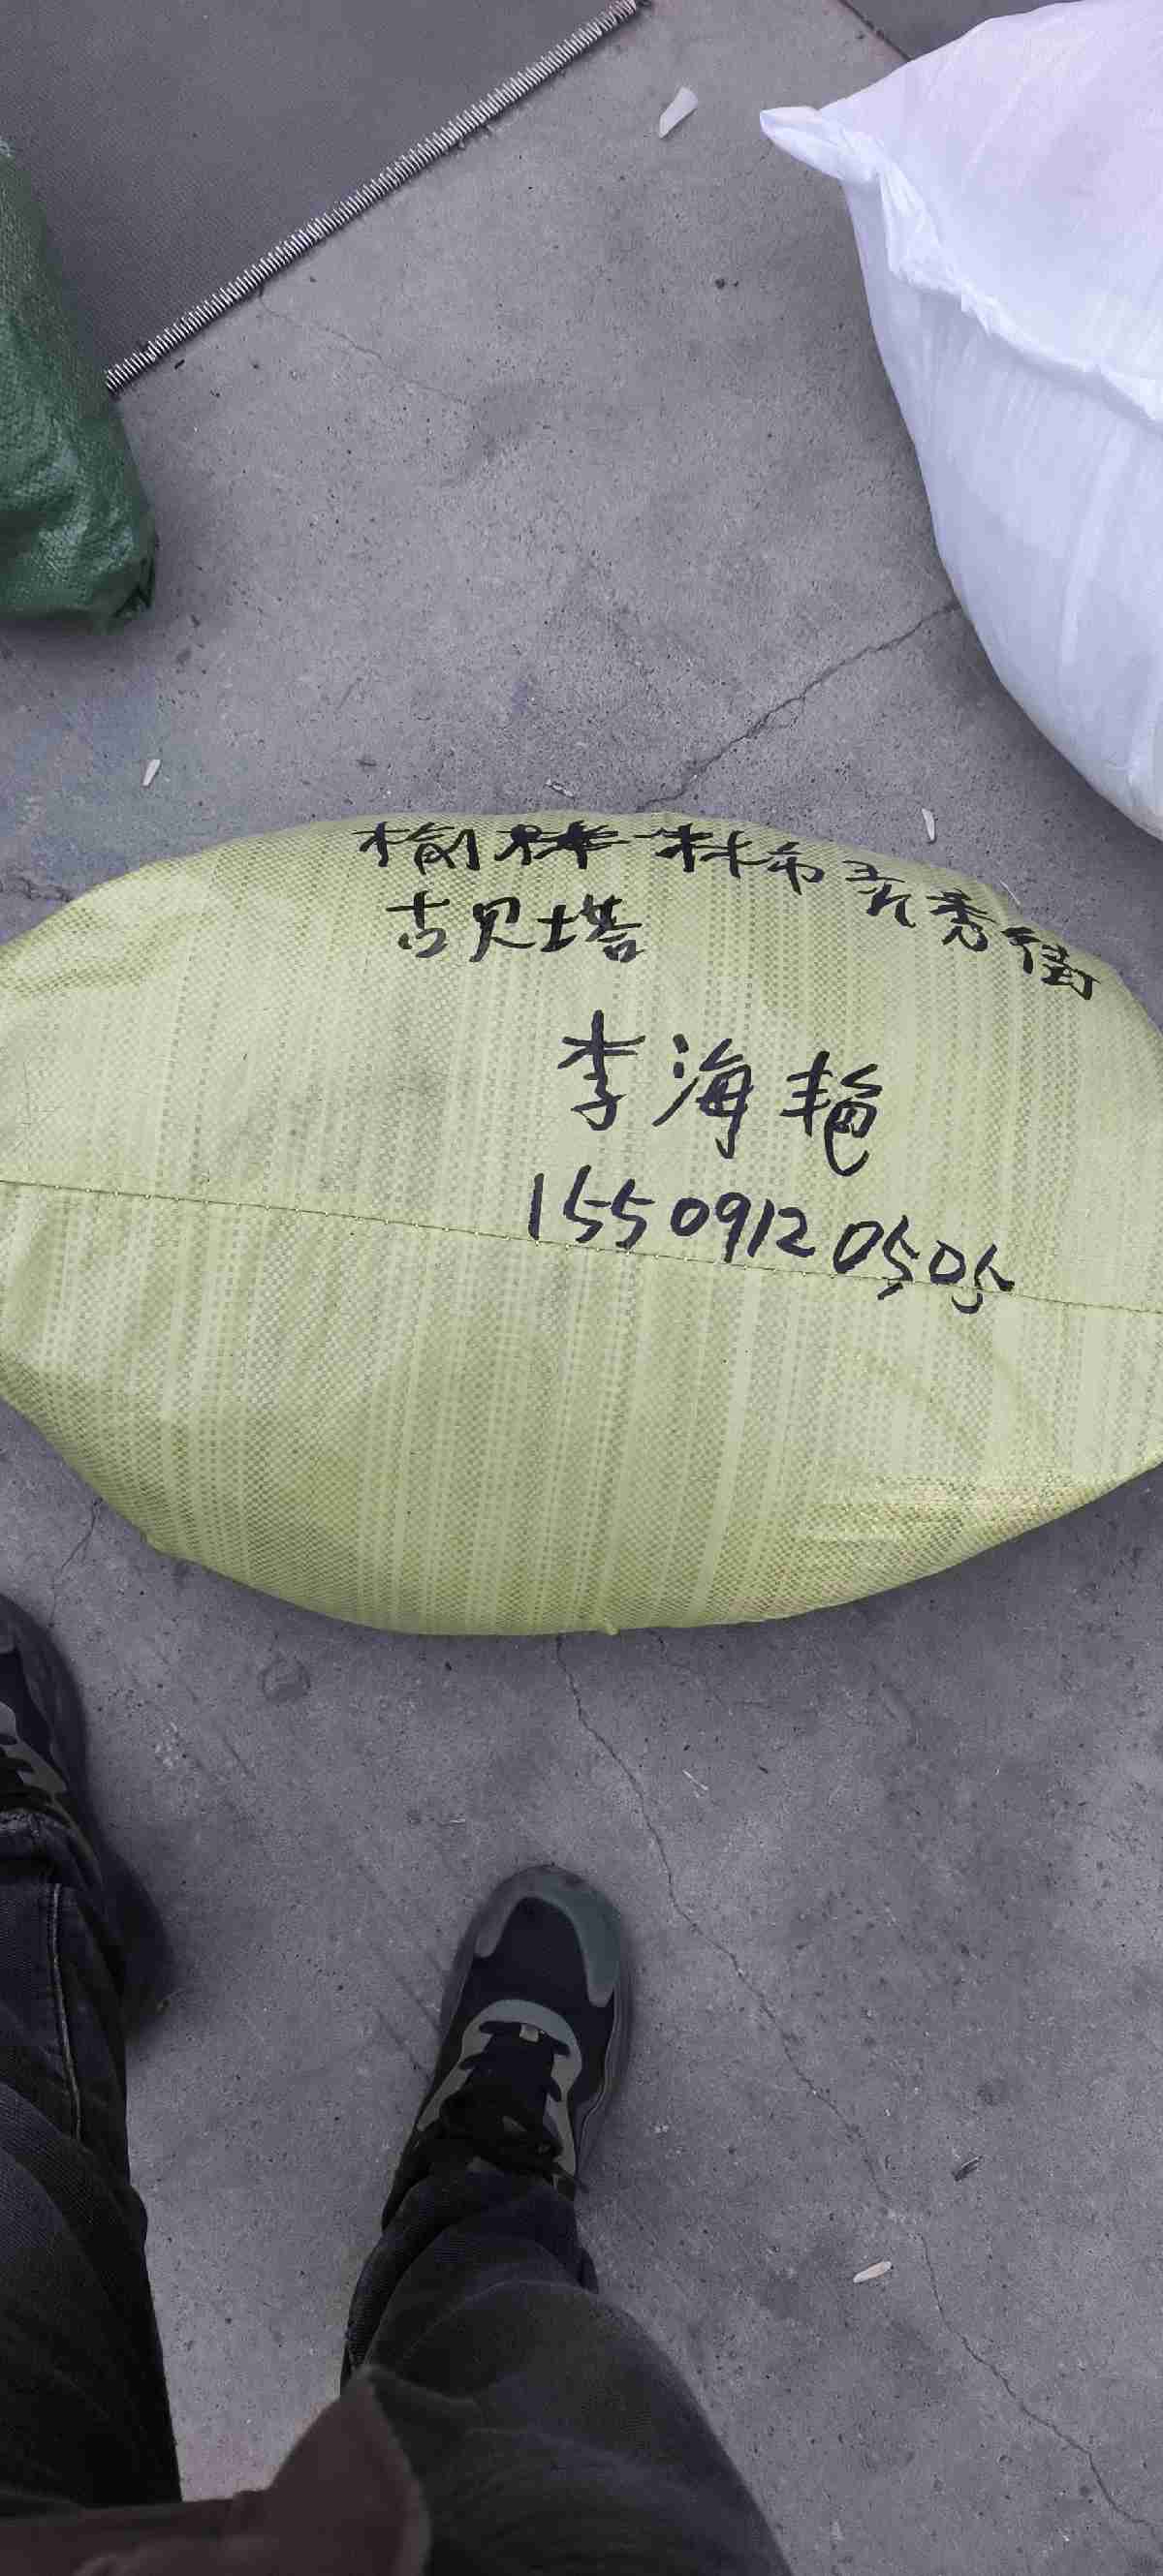 榆林 神木市 秀街
古贝塔
李海艳
15509120505